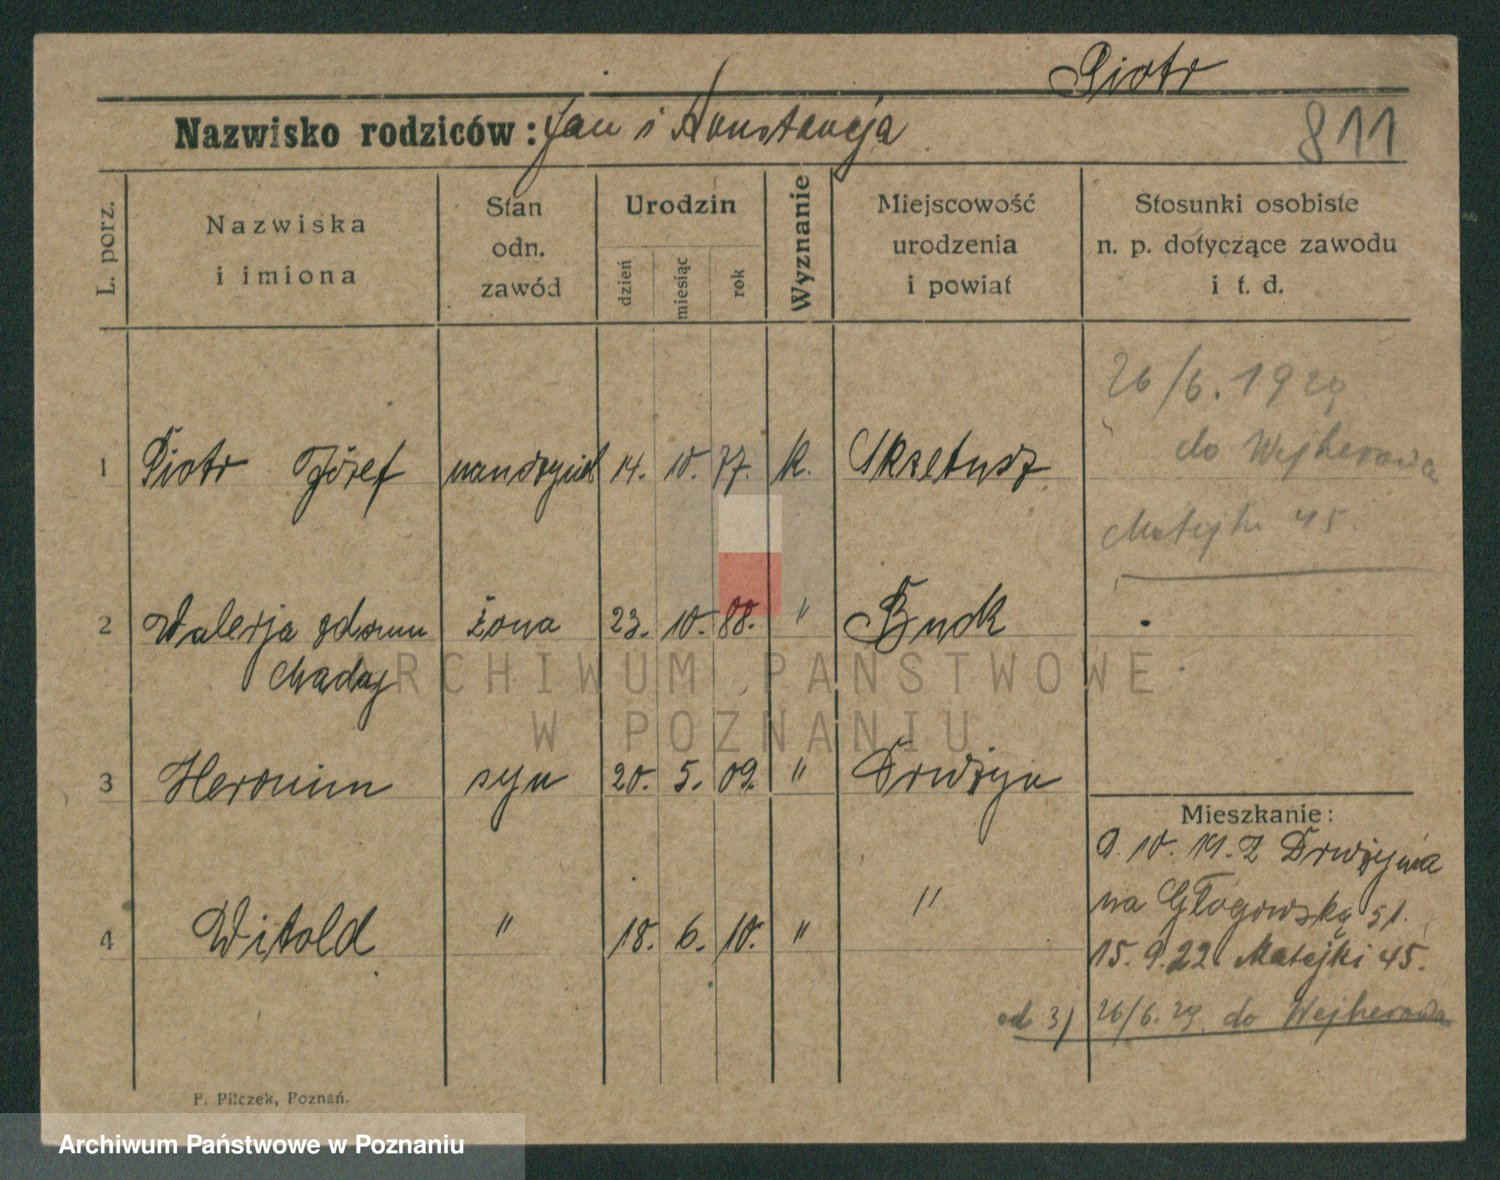 Piotr
Nazwisko rodziców: Jan i Konstancja
811
L. porz.
Nazwiska i imiona
Stan odn. zawód
Urodzin
dzień
miesiąc
rok
Wyznanie
Miejscowość urodzenia i powiat
Stosunki osobiste n. p. dotyczące zawodu i t. d.
26/6. 1929
do Wejherowa
Matejki 45.
1 Piotr Józef 14. 10. 77. k. Skrzetusz
2 Walerja żona 23. 10. 88. " Buck
Chadaj
3 Heronim syn 20. 5. 09. "
4 Witold " 18. 6. 10. " "
Mieszkanie:
9. 10. 19. Z
na Głogowską 51.
15. 9. 22. Matejki 45.
od 3) 26/6. 29 do Wejherowa
F. Pilczek, Poznań.
ARCHIWUM PAŃSTWOWE
W POZNANIU
Archiwum Państwowe w Poznaniu